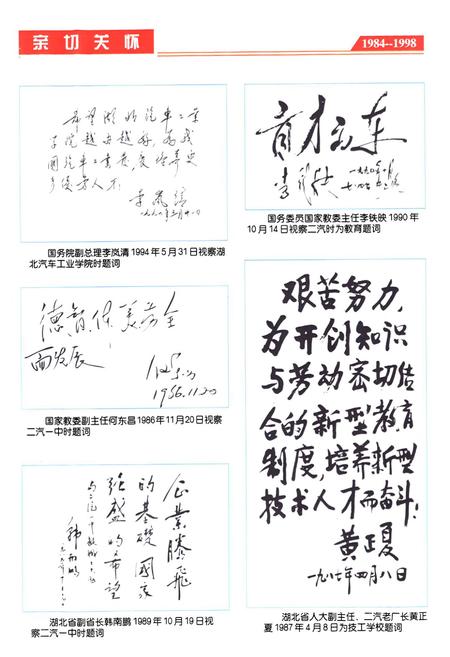 亲切关怀
1984--1998
希望湖北汽车工业
学院越办越好，为我
国汽车工业发展培养更
多优秀人才
李岚清
国务院副总理李岚清1994年5月31日视察湖
北汽车工业学院时题词
育才之本
李铁映
一九九〇年
国务委员国家教委主任李铁映1990年
10月14日视察二汽时为教育题词
德智体美劳全
面发展
何东昌
1986.11.20
国家教委副主任何东昌1986年11月20日视察
二汽一中时题词
艰苦努力，
为开创知识
与劳动密切结
合的新型教育
制度，培养新型
技术人才而奋斗！
黄正夏
一九八七年四月八日
湖北省人大副主任、二汽老厂长黄正
夏1987年4月8日为技工学校题词
企业腾飞
的基础国家
强盛的希望
韩南鹏
湖北省副省长韩南鹏1989年10月19日视
察二汽一中时题词